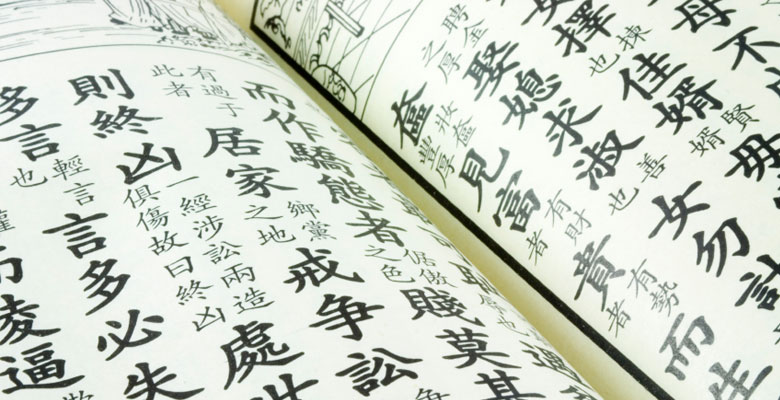 母不
女擇揀也佳婿賢婿毋
聘金之厚娶媳求淑善也女勿計
奩妝奩豐厚見富有財者貴有勢者而生
恥辱也
而作驕態倨傲之色者賤莫甚
有過于此者居家鄉黨之地戒爭訟
則終凶一經涉訟兩造俱傷故曰終凶處世
多言輕言也言多必失
而凌逼